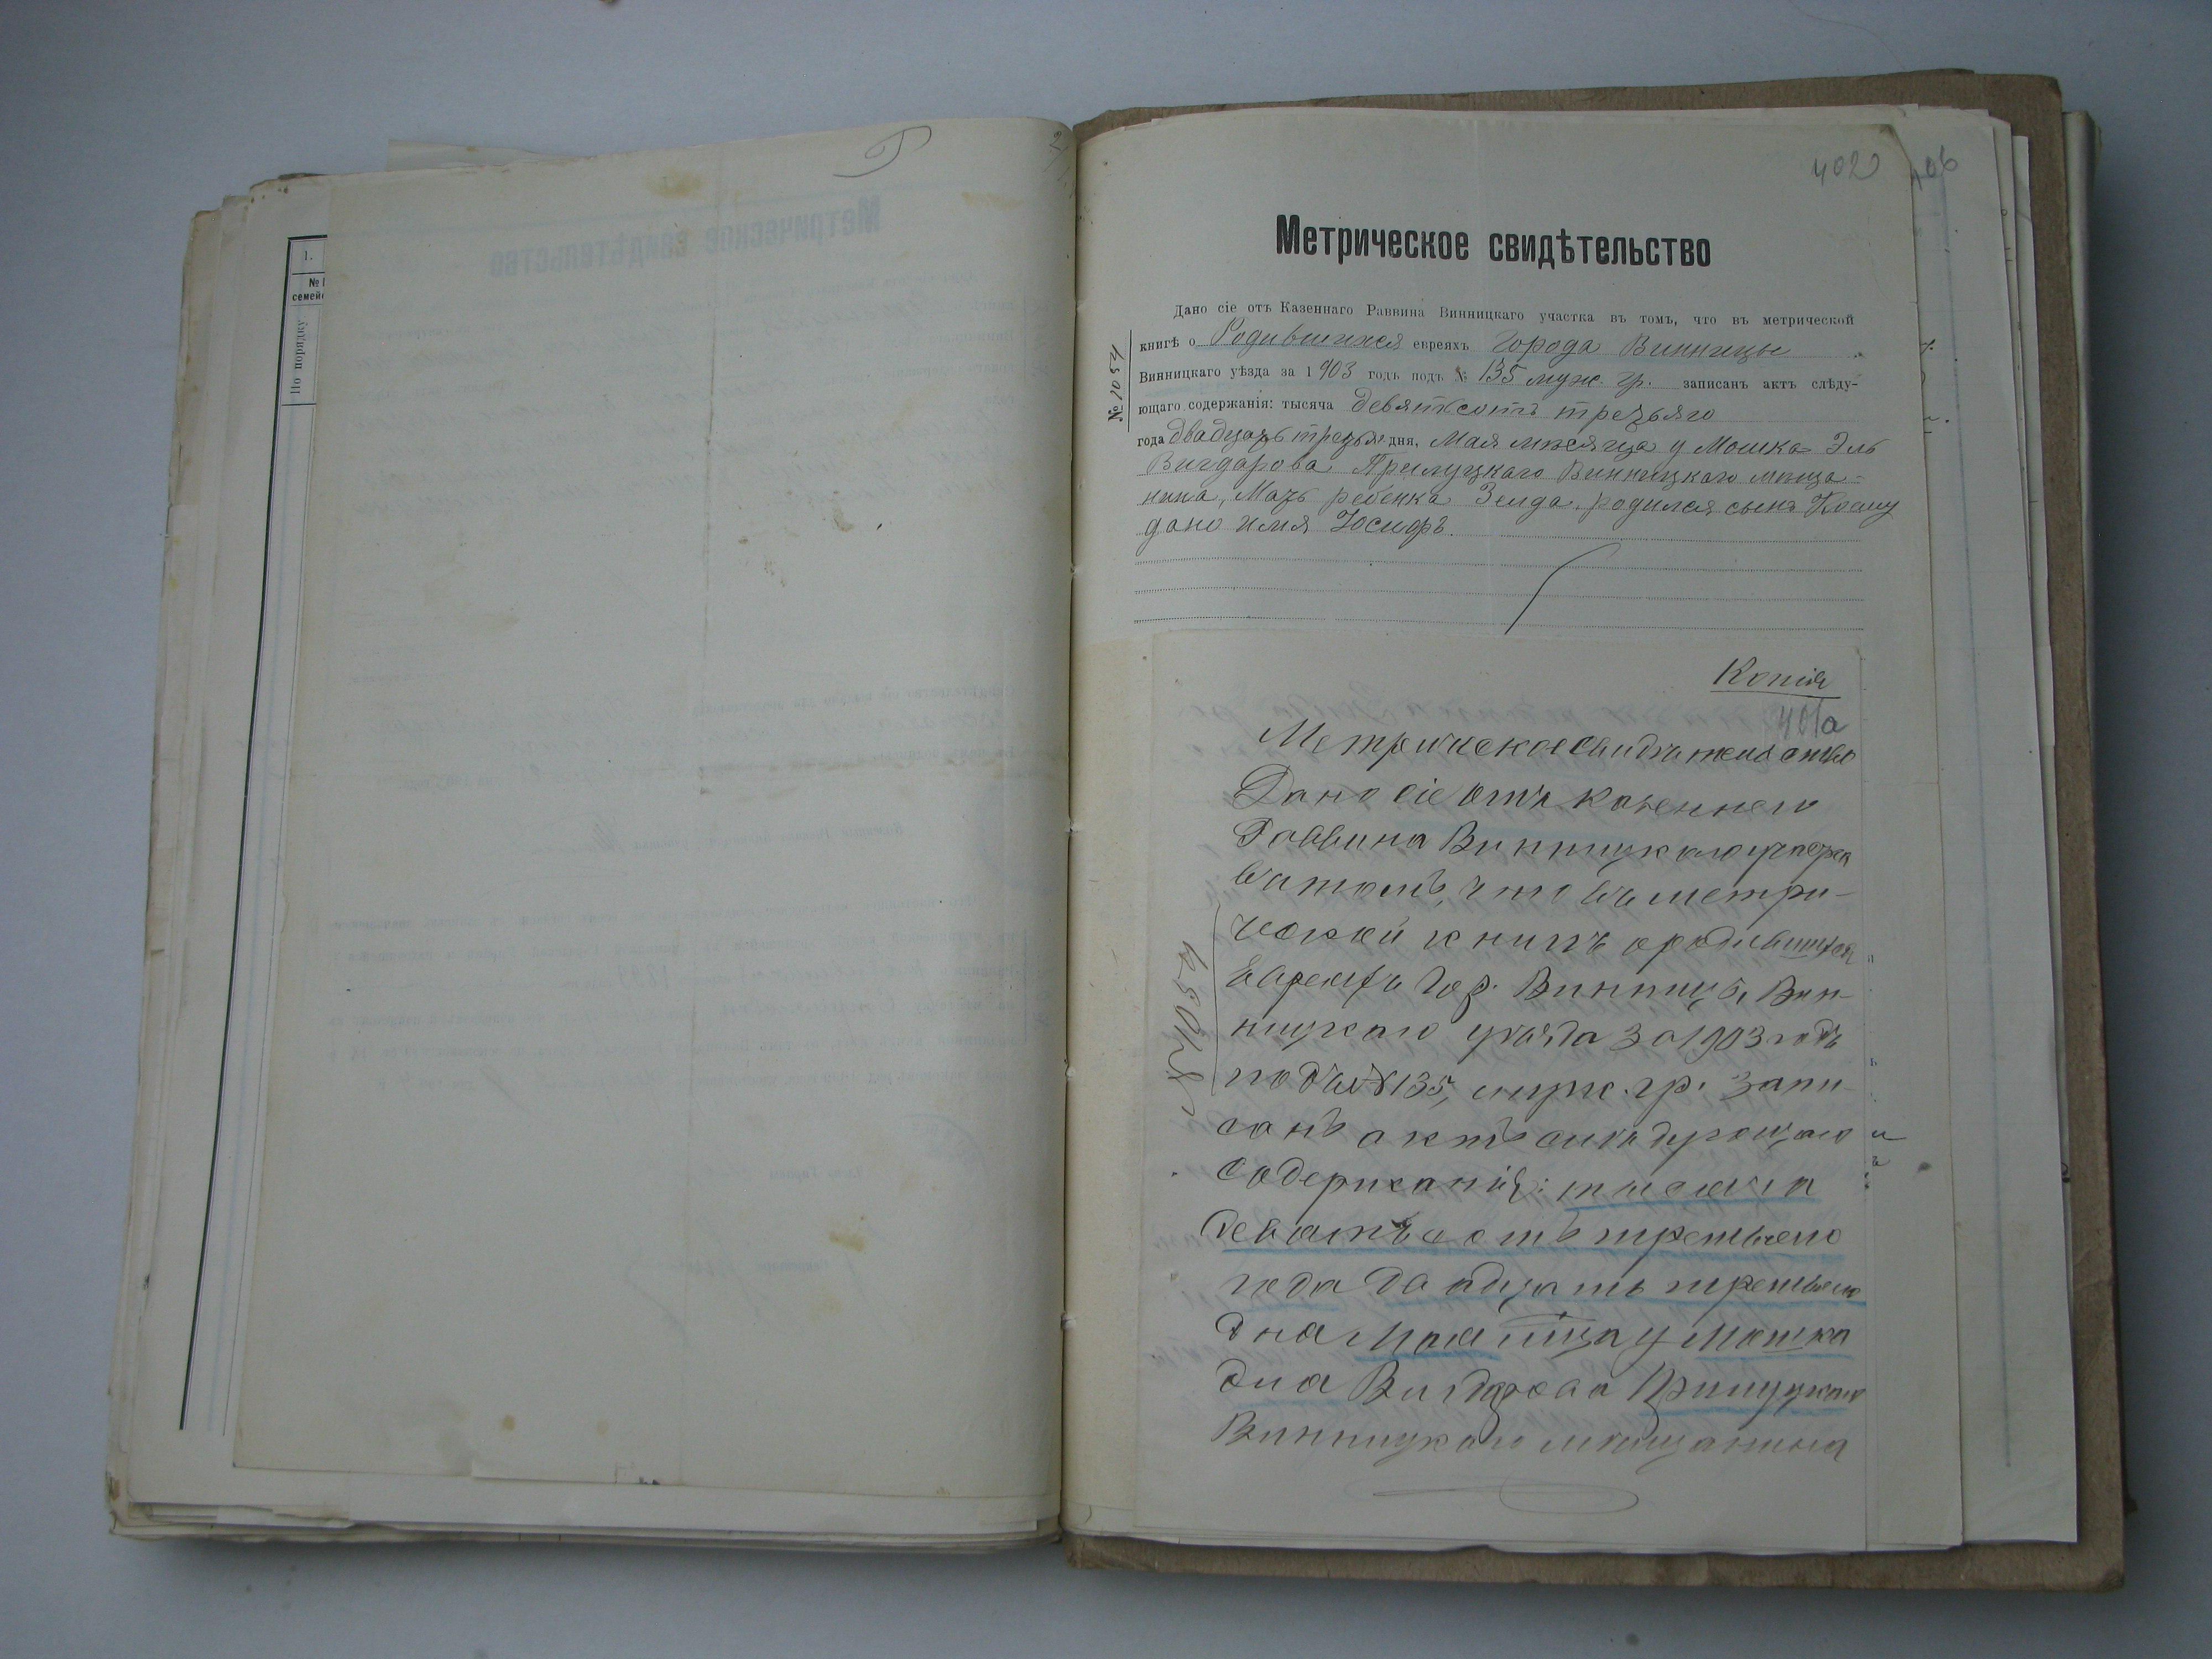 1.
№
семей
По порядку
402
406
Метрическое свидѣтельство
Дано сіе отъ Казеннаго Раввина Винницкаго участка въ томъ, что въ метрической
книгѣ о Родившихся евреяхъ города Винницы
Винницкаго уѣзда за 1903 годъ подъ № 135 муж. гр. записанъ актъ слѣду-
ющаго содержанія: тысяча девятьсотъ третьяго
года двадцать третья дня, Мая мѣсяца у Мошка Эль
Вигдарова Прилуцкаго Винницкаго мѣща-
нина, Мать ребенка Зелда, родился сынъ Коему
дано имя Іосифъ.
№ 1054
Копія
401а
Метрическое свидѣтельство
Дано сіе отъ Казеннаго
Раввина Винницкаго участка
въ томъ, что въ метри-
ческой книгѣ о родившихся
Евреяхъ Гор. Винницы, Вин-
ницкаго уѣзда за 1903 годъ
подъ № 135, муж. гр. запи-
санъ актъ слѣдующаго
содержанія: тысяча
девятьсотъ третьяго
года двадцать третьяго
дня Мая мца у Мошка
Эля Вигдорова Прилуцкаго
Винницкаго мѣщанина
№ 1054